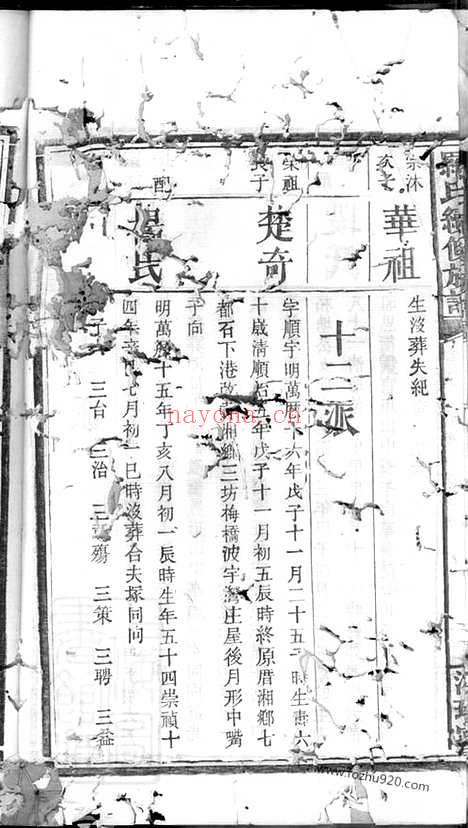 氏續修族譜
宗沐
次子
華祖
生沒葬失紀
十二派
榮祖
長子
楚奇
字順宇明萬曆十六年戊子十一月二十五 時生壽六
十歲清順治五年戊子十一月初五辰時終原厝湘鄉七
都石下港改 湘鄉三坊梅橋波字灣庄屋後月形中嘴
子向
配
楊氏
明萬曆十五年丁亥八月初一辰時生年五十四崇禎十
四年辛巳七月初一巳時沒葬合夫塚同向
子 三台 三治 三 殤 三策 三聘 三益
nayona.cn
www.rozhu920.com